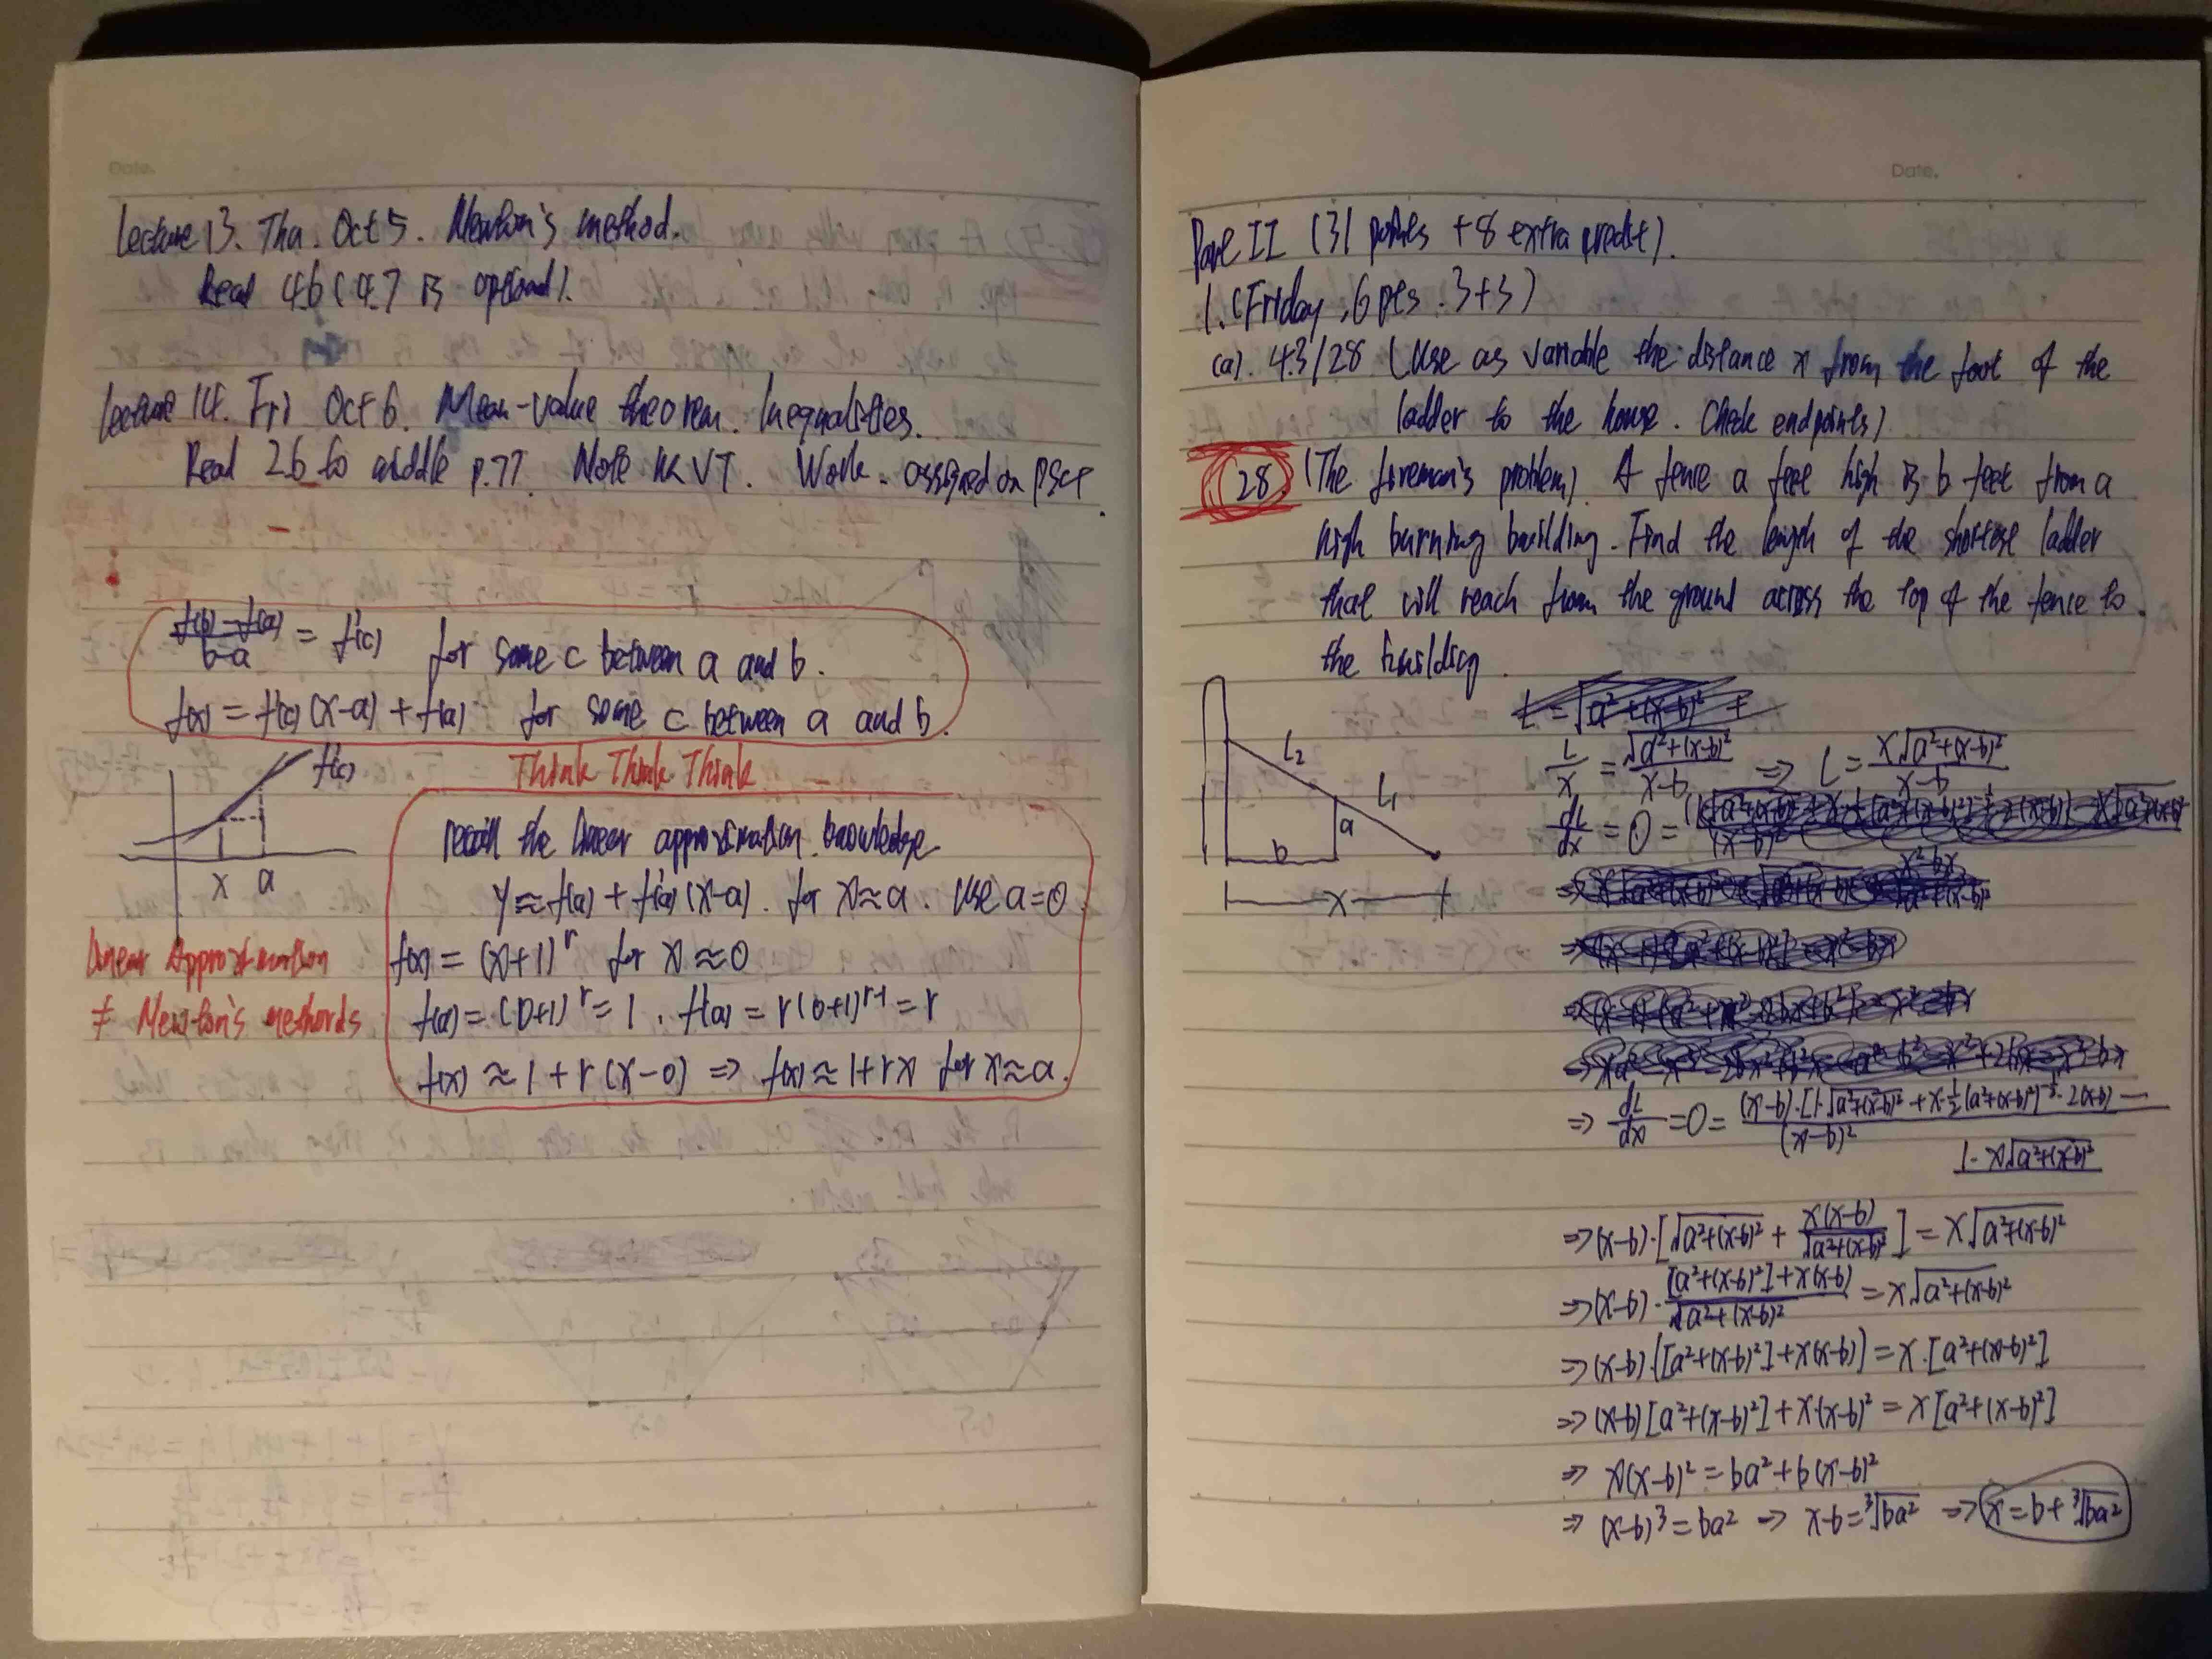 Date.
Lecture 13. Thu. Oct 5. Newton's method.
Read 4.6 (4.7 is optional).
Lecture 14. Fri Oct 6. Mean-value theorem. Inequalities.
Read 2.6 to middle p.77. Note MVT. Work. assigned on PSet.
(f(b)-f(a))/(b-a) = f'(c) for some c between a and b.
f(x) = f'(c)(x-a) + f(a) for some c between a and b.
Think Think Think
f'(c)
x a
recall the linear approximation knowledge
y ≈ f(a) + f'(a)(x-a). for x≈a. Use a=0.
f(x) = (x+1)^r for x≈0
f(a) = (0+1)^r = 1. f'(a) = r(0+1)^(r-1) = r
f(x) ≈ 1 + r(x-0) ⇒ f(x) ≈ 1+rx for x≈a.
Linear Approximation
≠ Newton's methords
Date.
Part II (31 points + 8 extra credit).
1. (Friday, 6 pts. 3+3)
(a). 4.3/28 (Use as variable the distance x from the foot of the
ladder to the house. Check endpoints)
28 (The fireman's problem) A fence a feet high is b feet from a
high burning building. Find the length of the shortest ladder
that will reach from the ground across the top of the fence to
the building.
L2
L1
a
b
x
L/x = √(a²+(x-b)²)/(x-b) ⇒ L = x√(a²+(x-b)²)/(x-b)
dL/dx = 0 =
⇒ dL/dx = 0 = ((x-b)·[1·√(a²+(x-b)²) + x·½(a²+(x-b)²)^(-½)·2(x-b)] − 1·x√(a²+(x-b)²))/(x-b)²
⇒ (x-b)·[√(a²+(x-b)²) + x(x-b)/√(a²+(x-b)²)] = x√(a²+(x-b)²)
⇒ (x-b)·([a²+(x-b)²]+x(x-b))/√(a²+(x-b)²) = x√(a²+(x-b)²)
⇒ (x-b)·([a²+(x-b)²]+x(x-b)) = x·[a²+(x-b)²]
⇒ (x-b)[a²+(x-b)²]+x·(x-b)² = x[a²+(x-b)²]
⇒ x(x-b)² = ba²+b(x-b)²
⇒ (x-b)³ = ba² ⇒ x-b = ³√(ba²) ⇒ x = b + ³√(ba²)